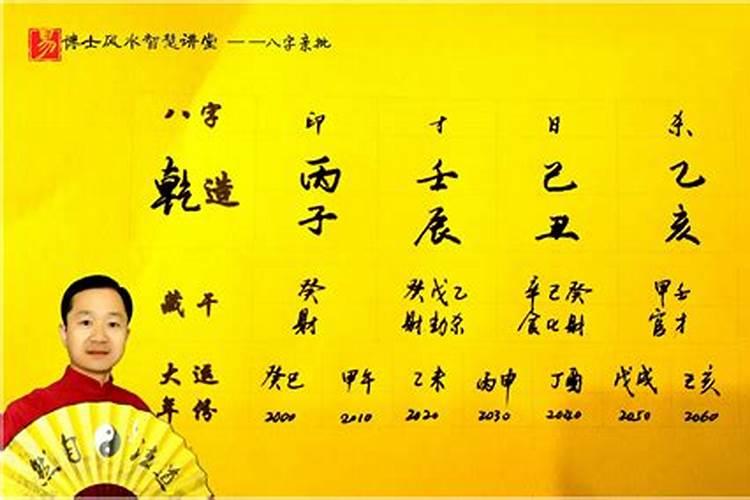 易 博士风水智慧讲堂 ——八字亲批
八字 印 才 日 杀
乾造 丙 壬 己 乙
子 辰 丑 亥
藏干 癸 癸戊乙 辛己癸 甲壬
財 財劫杀 食比財 官才
大运 癸巳 甲午 乙未 丙申 丁酉 戊戌 己亥
年份 2000 2010 2020 2030 2040 2050 2060
然自法道